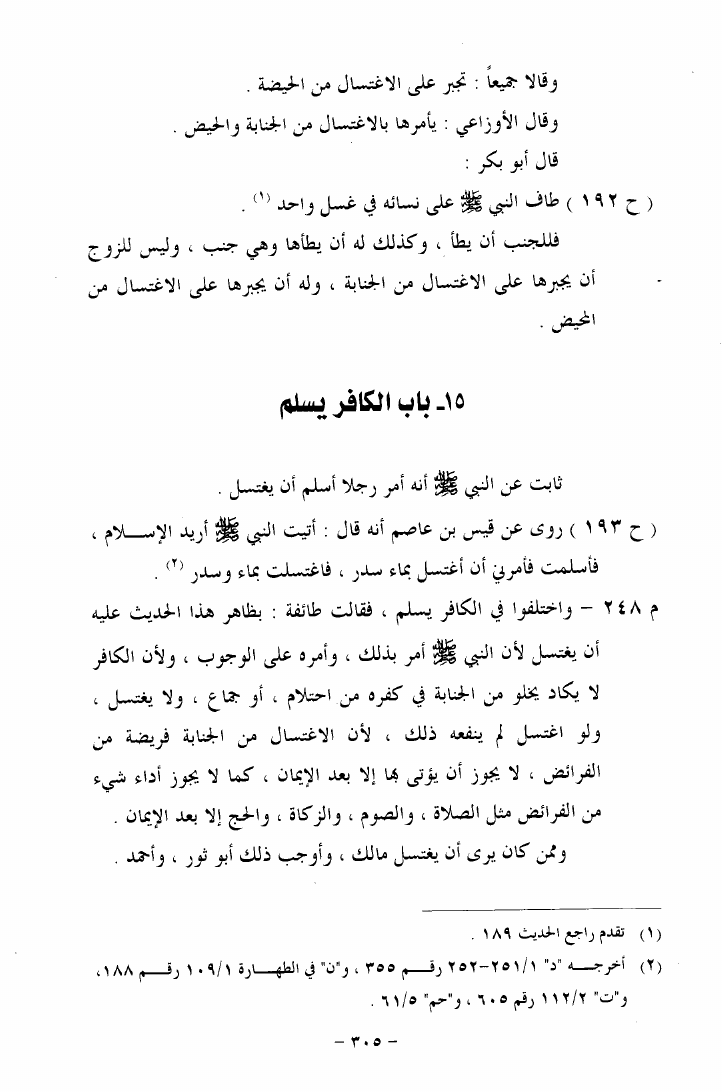 وقالا جميعاً : تجبر على الاغتسال من الحيضة .
وقال الأوزاعي : يأمرها بالاغتسال من الجنابة والحيض .
قال أبو بكر :
( ح ١٩٢ ) طاف النبي ﷺ على نسائه في غسل واحد (١) .
فللجنب أن يطأ ، وكذلك له أن يطأها وهي جنب ، وليس للزوج
أن يجبرها على الاغتسال من الجنابة ، وله أن يجبرها على الاغتسال من
المحيض .
١٥ـ باب الكافر يسلم
ثابت عن النبي ﷺ أنه أمر رجلا أسلم أن يغتسل .
( ح ١٩٣ ) روى عن قيس بن عاصم أنه قال : أتيت النبي ﷺ أريد الإسلام ،
فأسلمت فأمرني أن أغتسل بماء سدر ، فاغتسلت بماء وسدر (٢) .
م ٢٤٨ – واختلفوا في الكافر يسلم ، فقالت طائفة : بظاهر هذا الحديث عليه
أن يغتسل لأن النبي ﷺ أمر بذلك ، وأمره على الوجوب ، ولأن الكافر
لا يكاد يخلو من الجنابة في كفره من احتلام ، أو جماع ، ولا يغتسل ،
ولو اغتسل لم ينفعه ذلك ، لأن الاغتسال من الجنابة فريضة من
الفرائض ، لا يجوز أن يؤتى بها إلا بعد الإيمان ، كما لا يجوز أداء شيء
من الفرائض مثل الصلاة ، والصوم ، والزكاة ، والحج إلا بعد الإيمان .
وممن كان يرى أن يغتسل مالك ، وأوجب ذلك أبو ثور ، وأحمد .
(١) تقدم راجع الحديث ١٨٩ .
(٢) أخرجه "د" ٢٥١/١–٢٥٢ رقم ٣٥٥ ، و"ن" في الطهارة ١٠٩/١ رقم ١٨٨ ،
و"ت" ١١٢/٢ رقم ٦٠٥ ، و"حم" ٦١/٥ .
– ٣٠٥ –